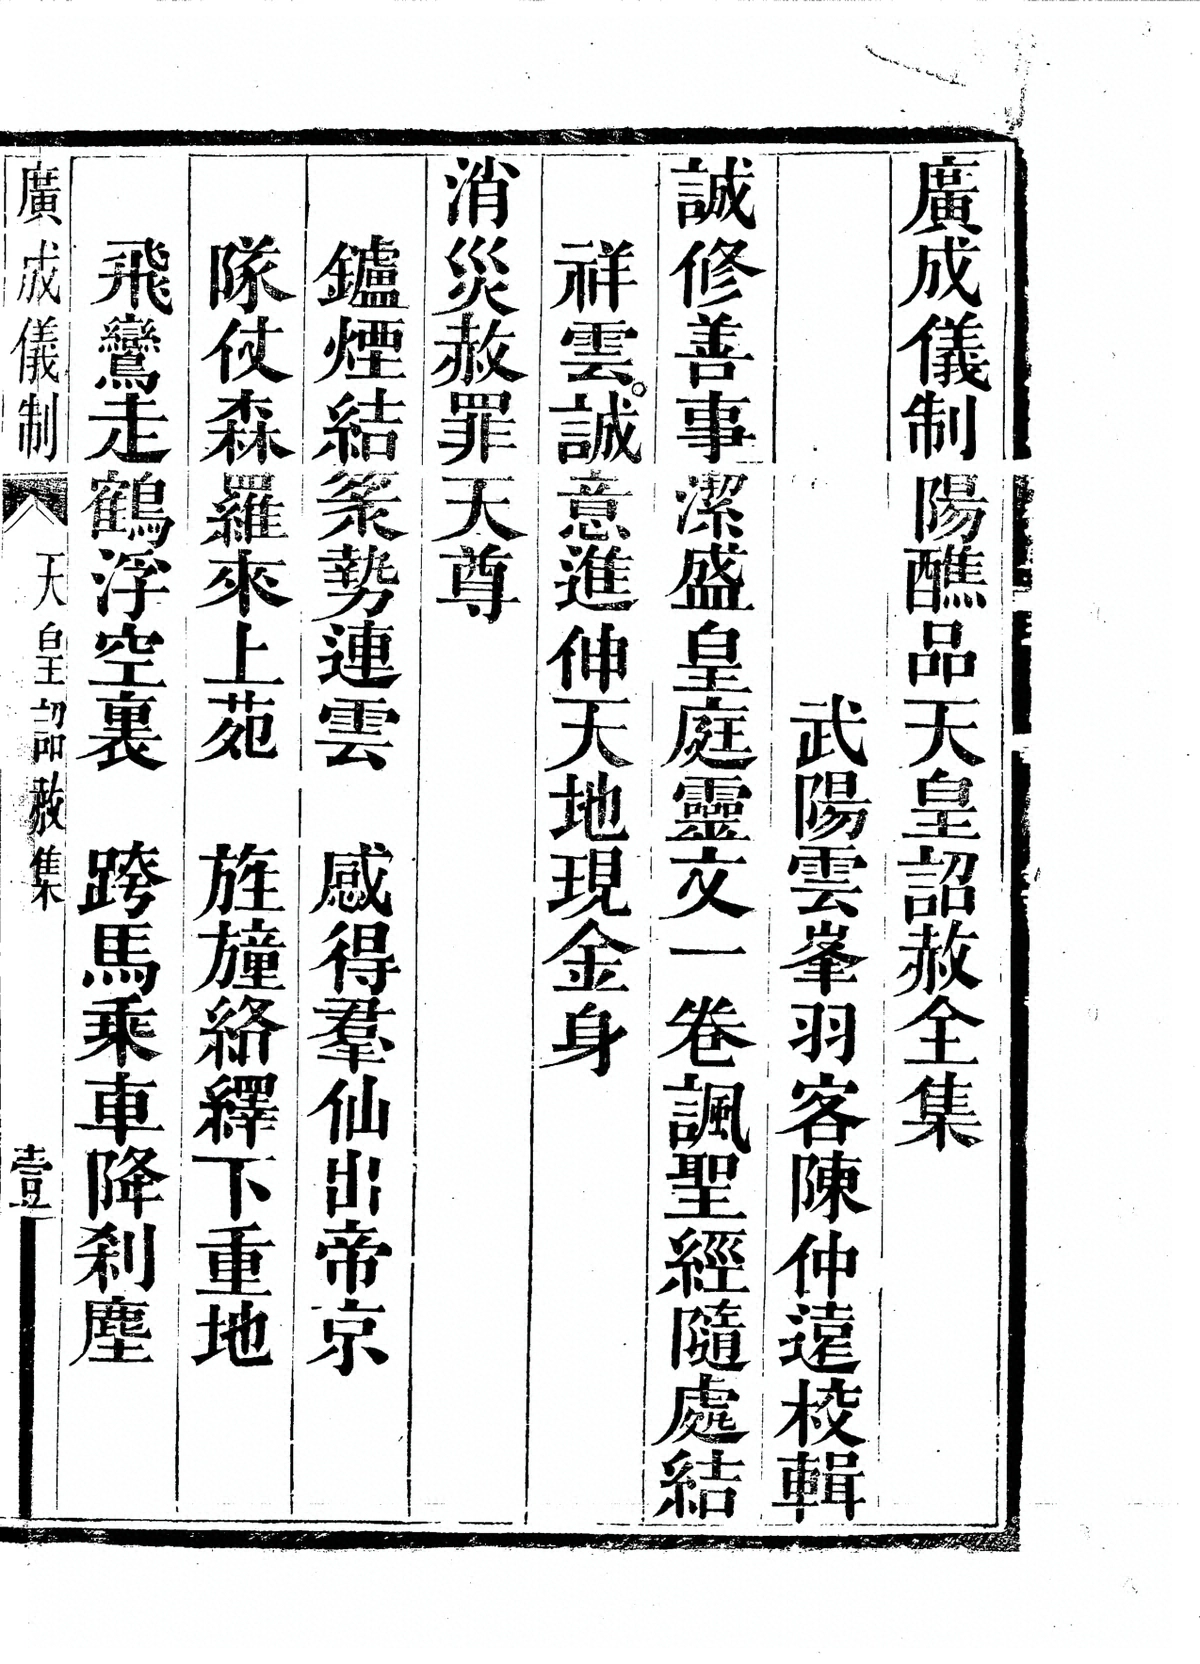 廣成儀制陽醮品天皇詔赦全集
武陽雲峯羽客陳仲遠校輯
誠修善事潔盛皇庭靈文一卷諷聖經隨處結
祥雲。誠意進伸天地現金身
消災赦罪天尊
鑪煙結篆勢連雲　感得羣仙出帝京
隊仗森羅來上苑　旌旛絡繹下重地
飛鸞走鶴浮空裏　跨馬乘車降刹塵
廣成儀制　天皇詔赦集　壹